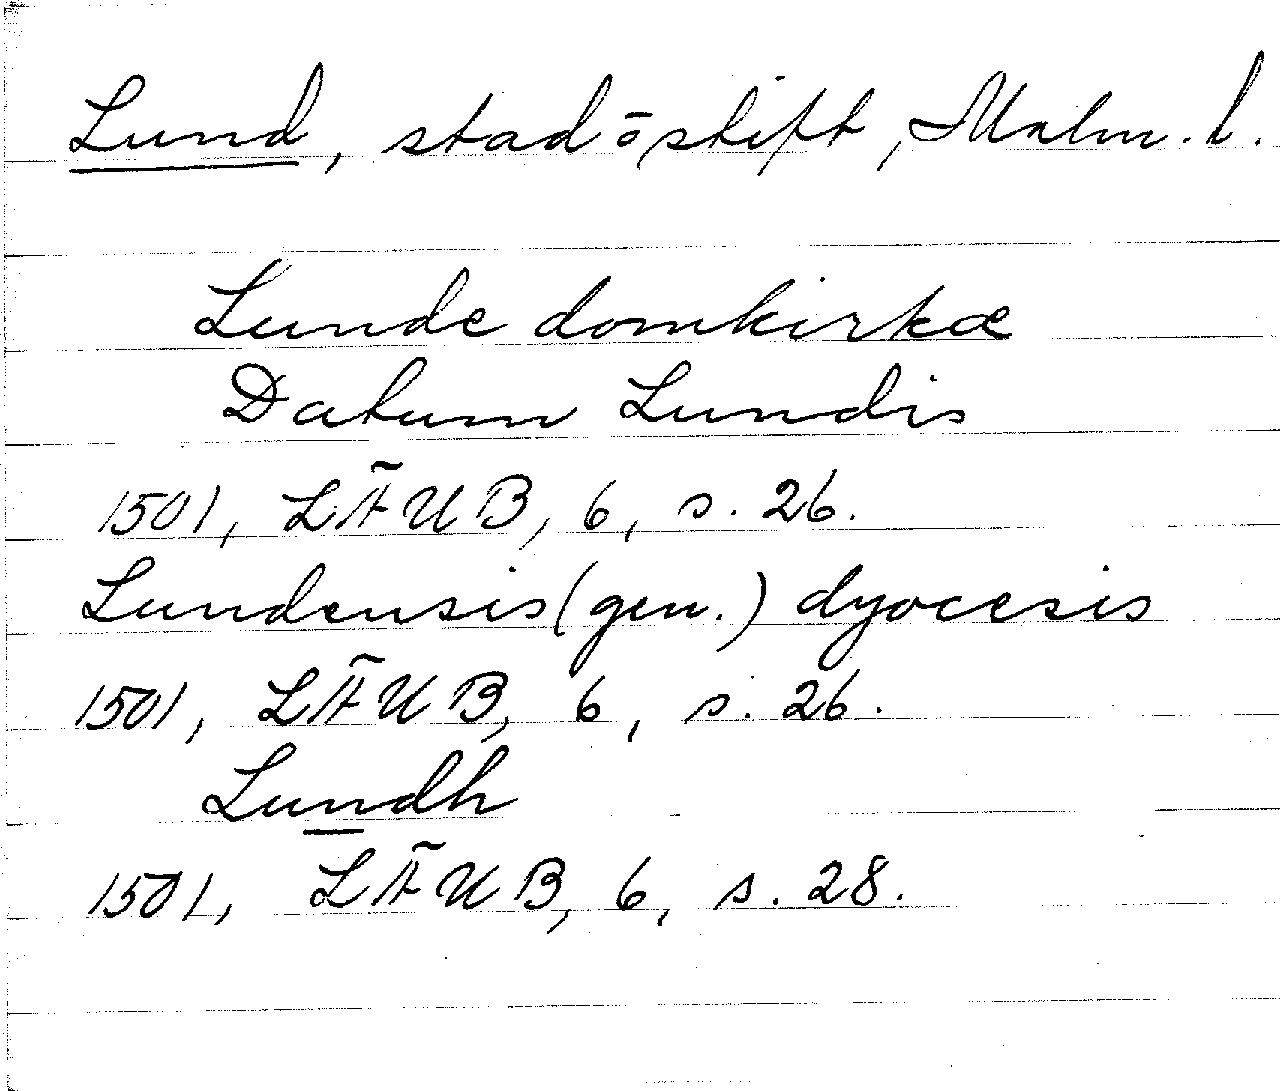 Lund, stad o stift, Malm. l.
Lunde domkirkæ
Datum Lundis
1501, LÄUB, 6, s. 26.
Lundensis (gen.) dyocesis
1501, LÄUB, 6, s. 26.
Lundh
1501, LÄUB, 6, s. 28.